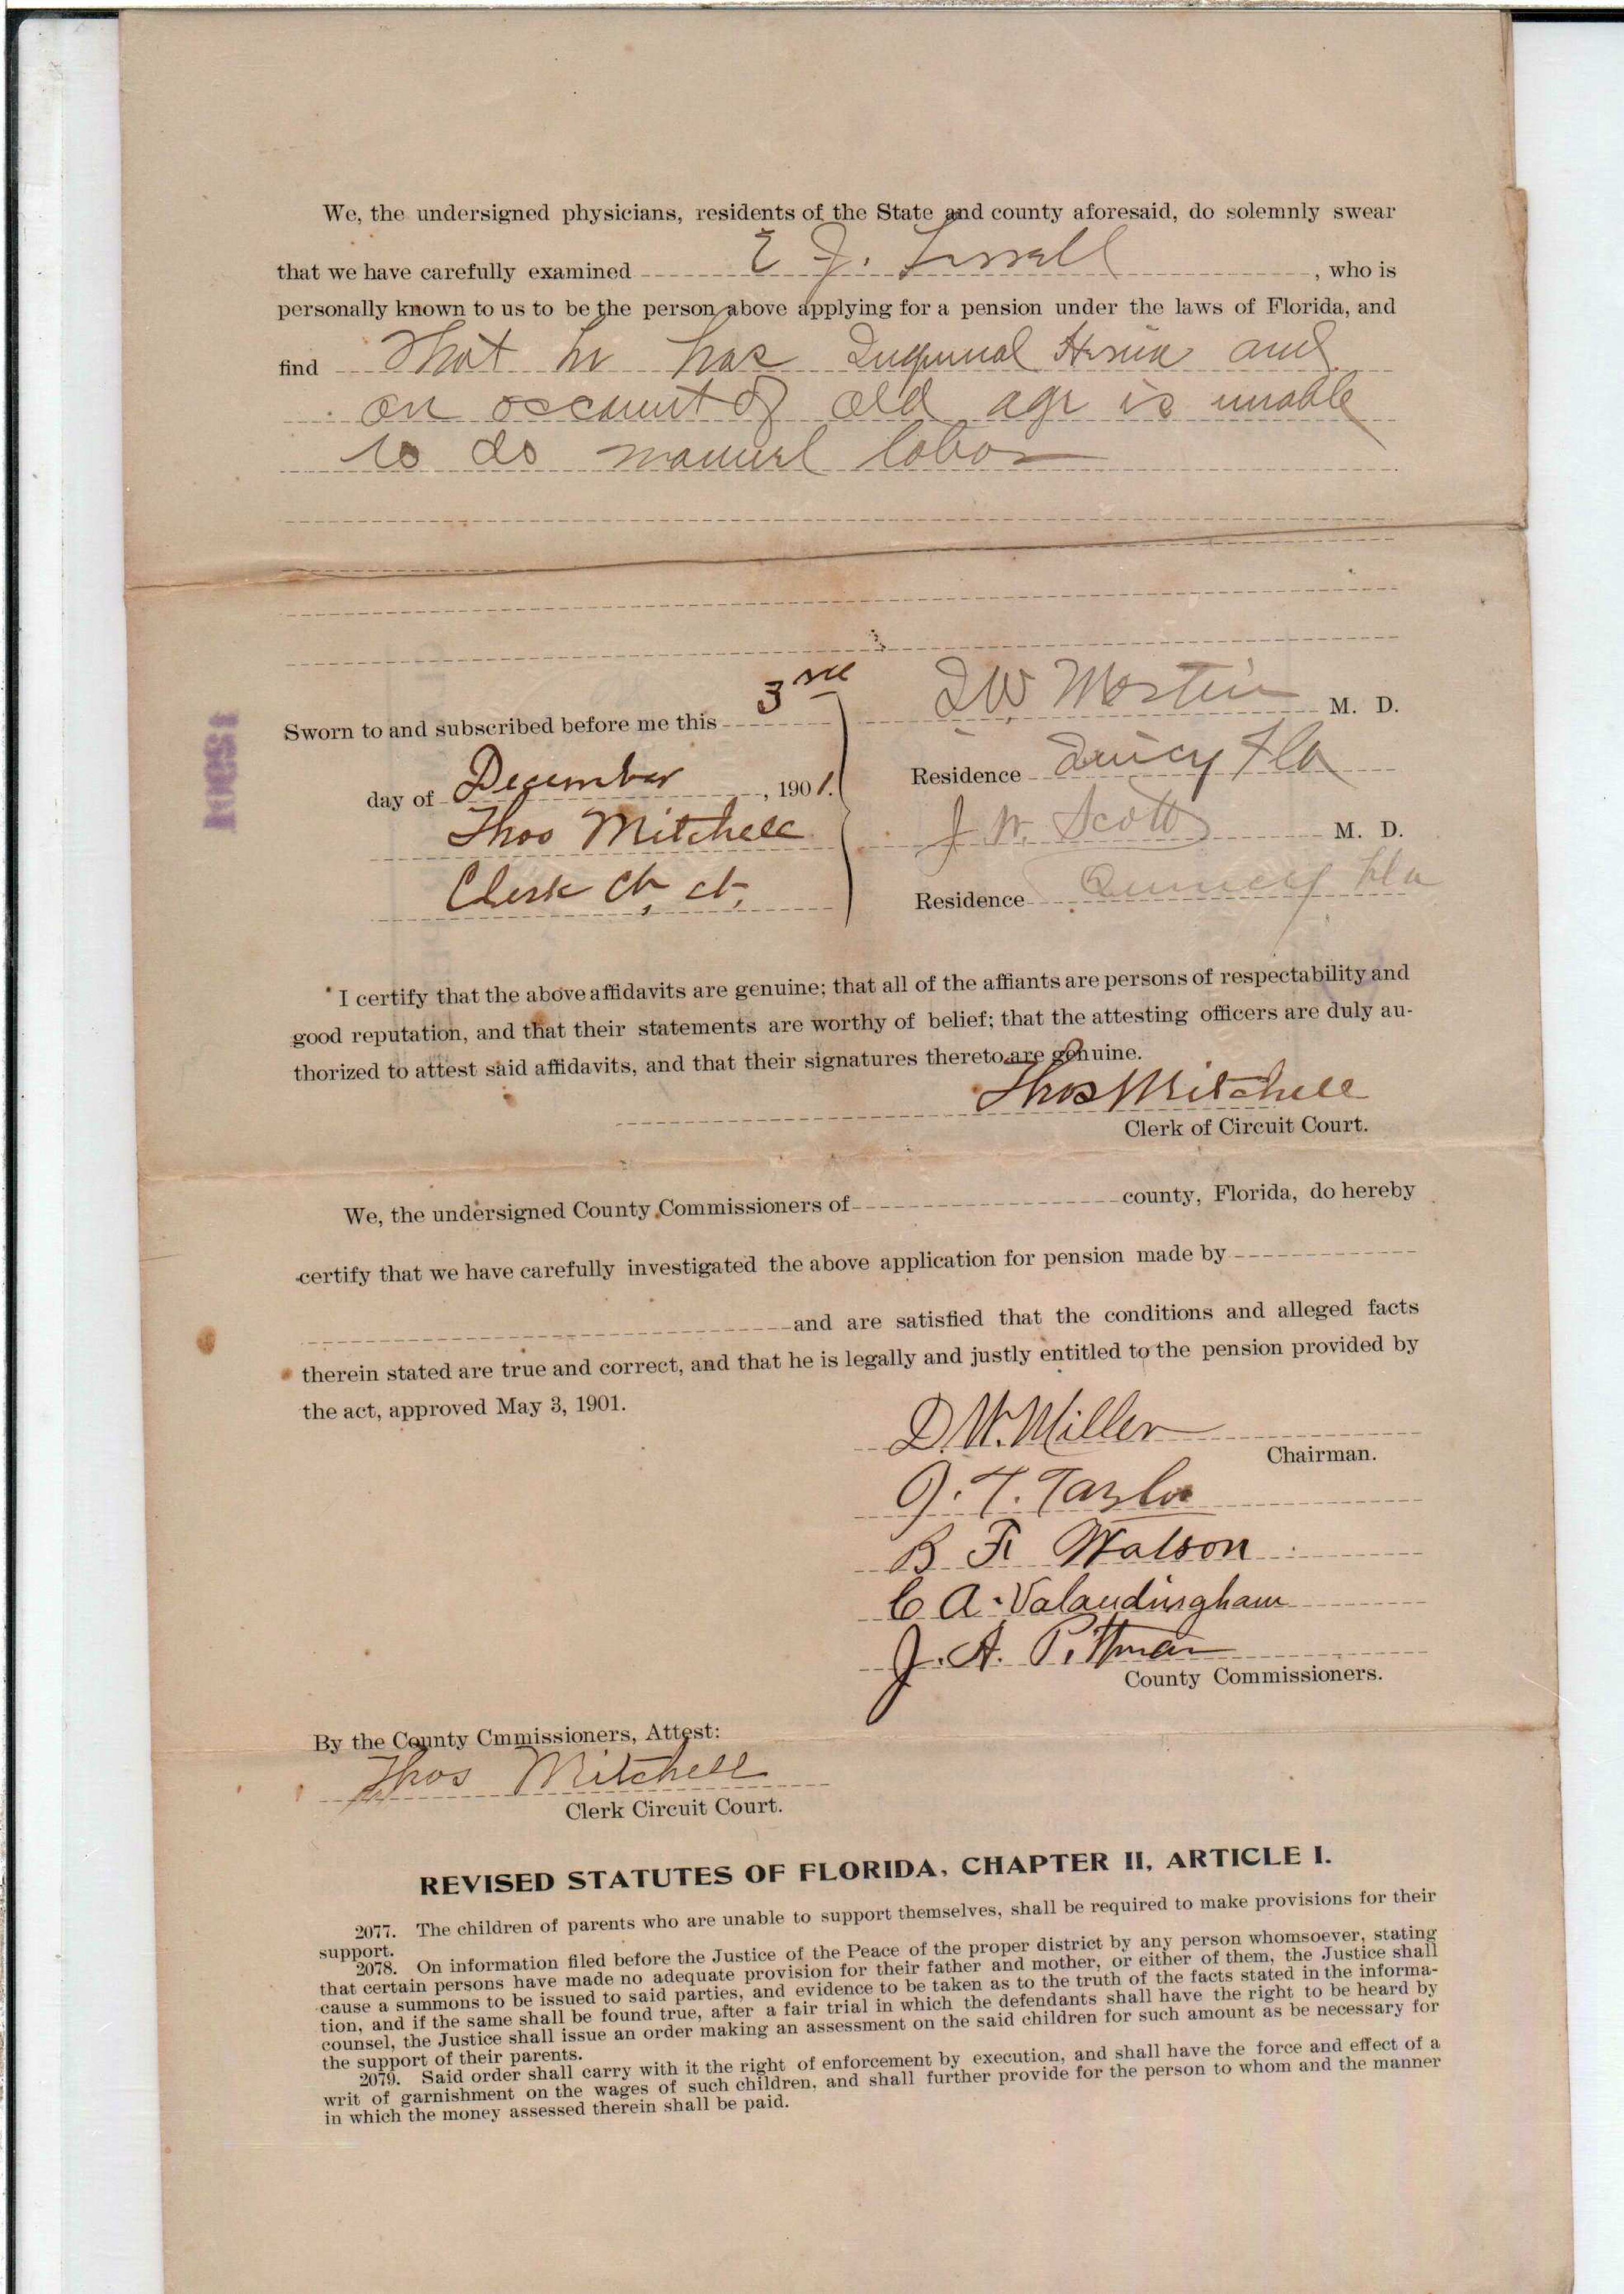 We, the undersigned physicians, residents of the State and county aforesaid, do solemnly swear
that we have carefully examined E J. , who is
personally known to us to be the person above applying for a pension under the laws of Florida, and
find That he has Inguinal Hernia and
on account of old age is unable
to do manuel labor
Sworn to and subscribed before me this 3rd
day of December, 1901.
Thos Mitchell
Clerk Ct. ct.
M. D.
Residence Quincy Fla
J W. Scott M. D.
Residence Quincy Fla
I certify that the above affidavits are genuine; that all of the affiants are persons of respectability and
good reputation, and that their statements are worthy of belief; that the attesting officers are duly au-
thorized to attest said affidavits, and that their signatures thereto are genuine.
Thos Mitchell
Clerk of Circuit Court.
We, the undersigned County Commissioners of county, Florida, do hereby
certify that we have carefully investigated the above application for pension made by
and are satisfied that the conditions and alleged facts
therein stated are true and correct, and that he is legally and justly entitled to the pension provided by
the act, approved May 3, 1901.
D. W. Miller
Chairman.
J. T. Taylor
B F. Watson
C A. Valandingham
J. A. Pittman
County Commissioners.
By the County Cmmissioners, Attest:
Thos Mitchell
Clerk Circuit Court.
REVISED STATUTES OF FLORIDA, CHAPTER II, ARTICLE I.
2077. The children of parents who are unable to support themselves, shall be required to make provisions for their
support.
2078. On information filed before the Justice of the Peace of the proper district by any person whomsoever, stating
that certain persons have made no adequate provision for their father and mother, or either of them, the Justice shall
cause a summons to be issued to said parties, and evidence to be taken as to the truth of the facts stated in the informa-
tion, and if the same shall be found true, after a fair trial in which the defendants shall have the right to be heard by
counsel, the Justice shall issue an order making an assessment on the said children for such amount as be necessary for
the support of their parents.
2079. Said order shall carry with it the right of enforcement by execution, and shall have the force and effect of a
writ of garnishment on the wages of such children, and shall further provide for the person to whom and the manner
in which the money assessed therein shall be paid.